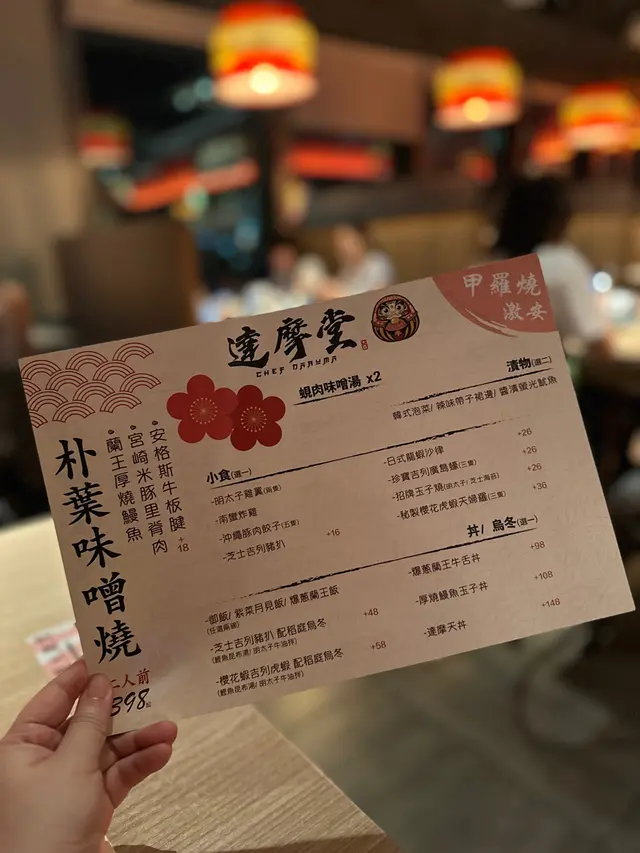 甲羅燒
激安
達摩堂
CHEF DARUMA
蜆肉味噌湯 x2
漬物(選二)
韓式泡菜/ 辣味帶子裙邊/ 醬漬螢光魷魚
朴葉味噌燒
•安格斯牛板腱 +18
•宮崎米豚里脊肉
•蘭王厚燒鰻魚
二人前
398起
小食(選一)
-明太子雞翼(兩隻)
-南蠻炸雞
-沖繩豚肉餃子(五隻)
-芝士吉列豬扒 +16
-日式龍蝦沙律 +26
-珍寶吉列廣島蠔(三隻) +26
-招牌玉子燒(明太子/ 芝士海苔) +26
-秘製櫻花虎蝦天婦羅(三隻) +36
丼/ 烏冬(選一)
-御飯/ 紫菜月見飯/ 爆蔥蘭王飯
(任選兩碗)
-芝士吉列豬扒 配稻庭烏冬 +48
(鰹魚昆布湯/ 明太子牛油拌)
-櫻花蝦吉列虎蝦 配稻庭烏冬 +58
(鰹魚昆布湯/ 明太子牛油拌)
-爆蔥蘭王牛舌丼 +98
-厚燒鰻魚玉子丼 +108
-達摩天丼 +148